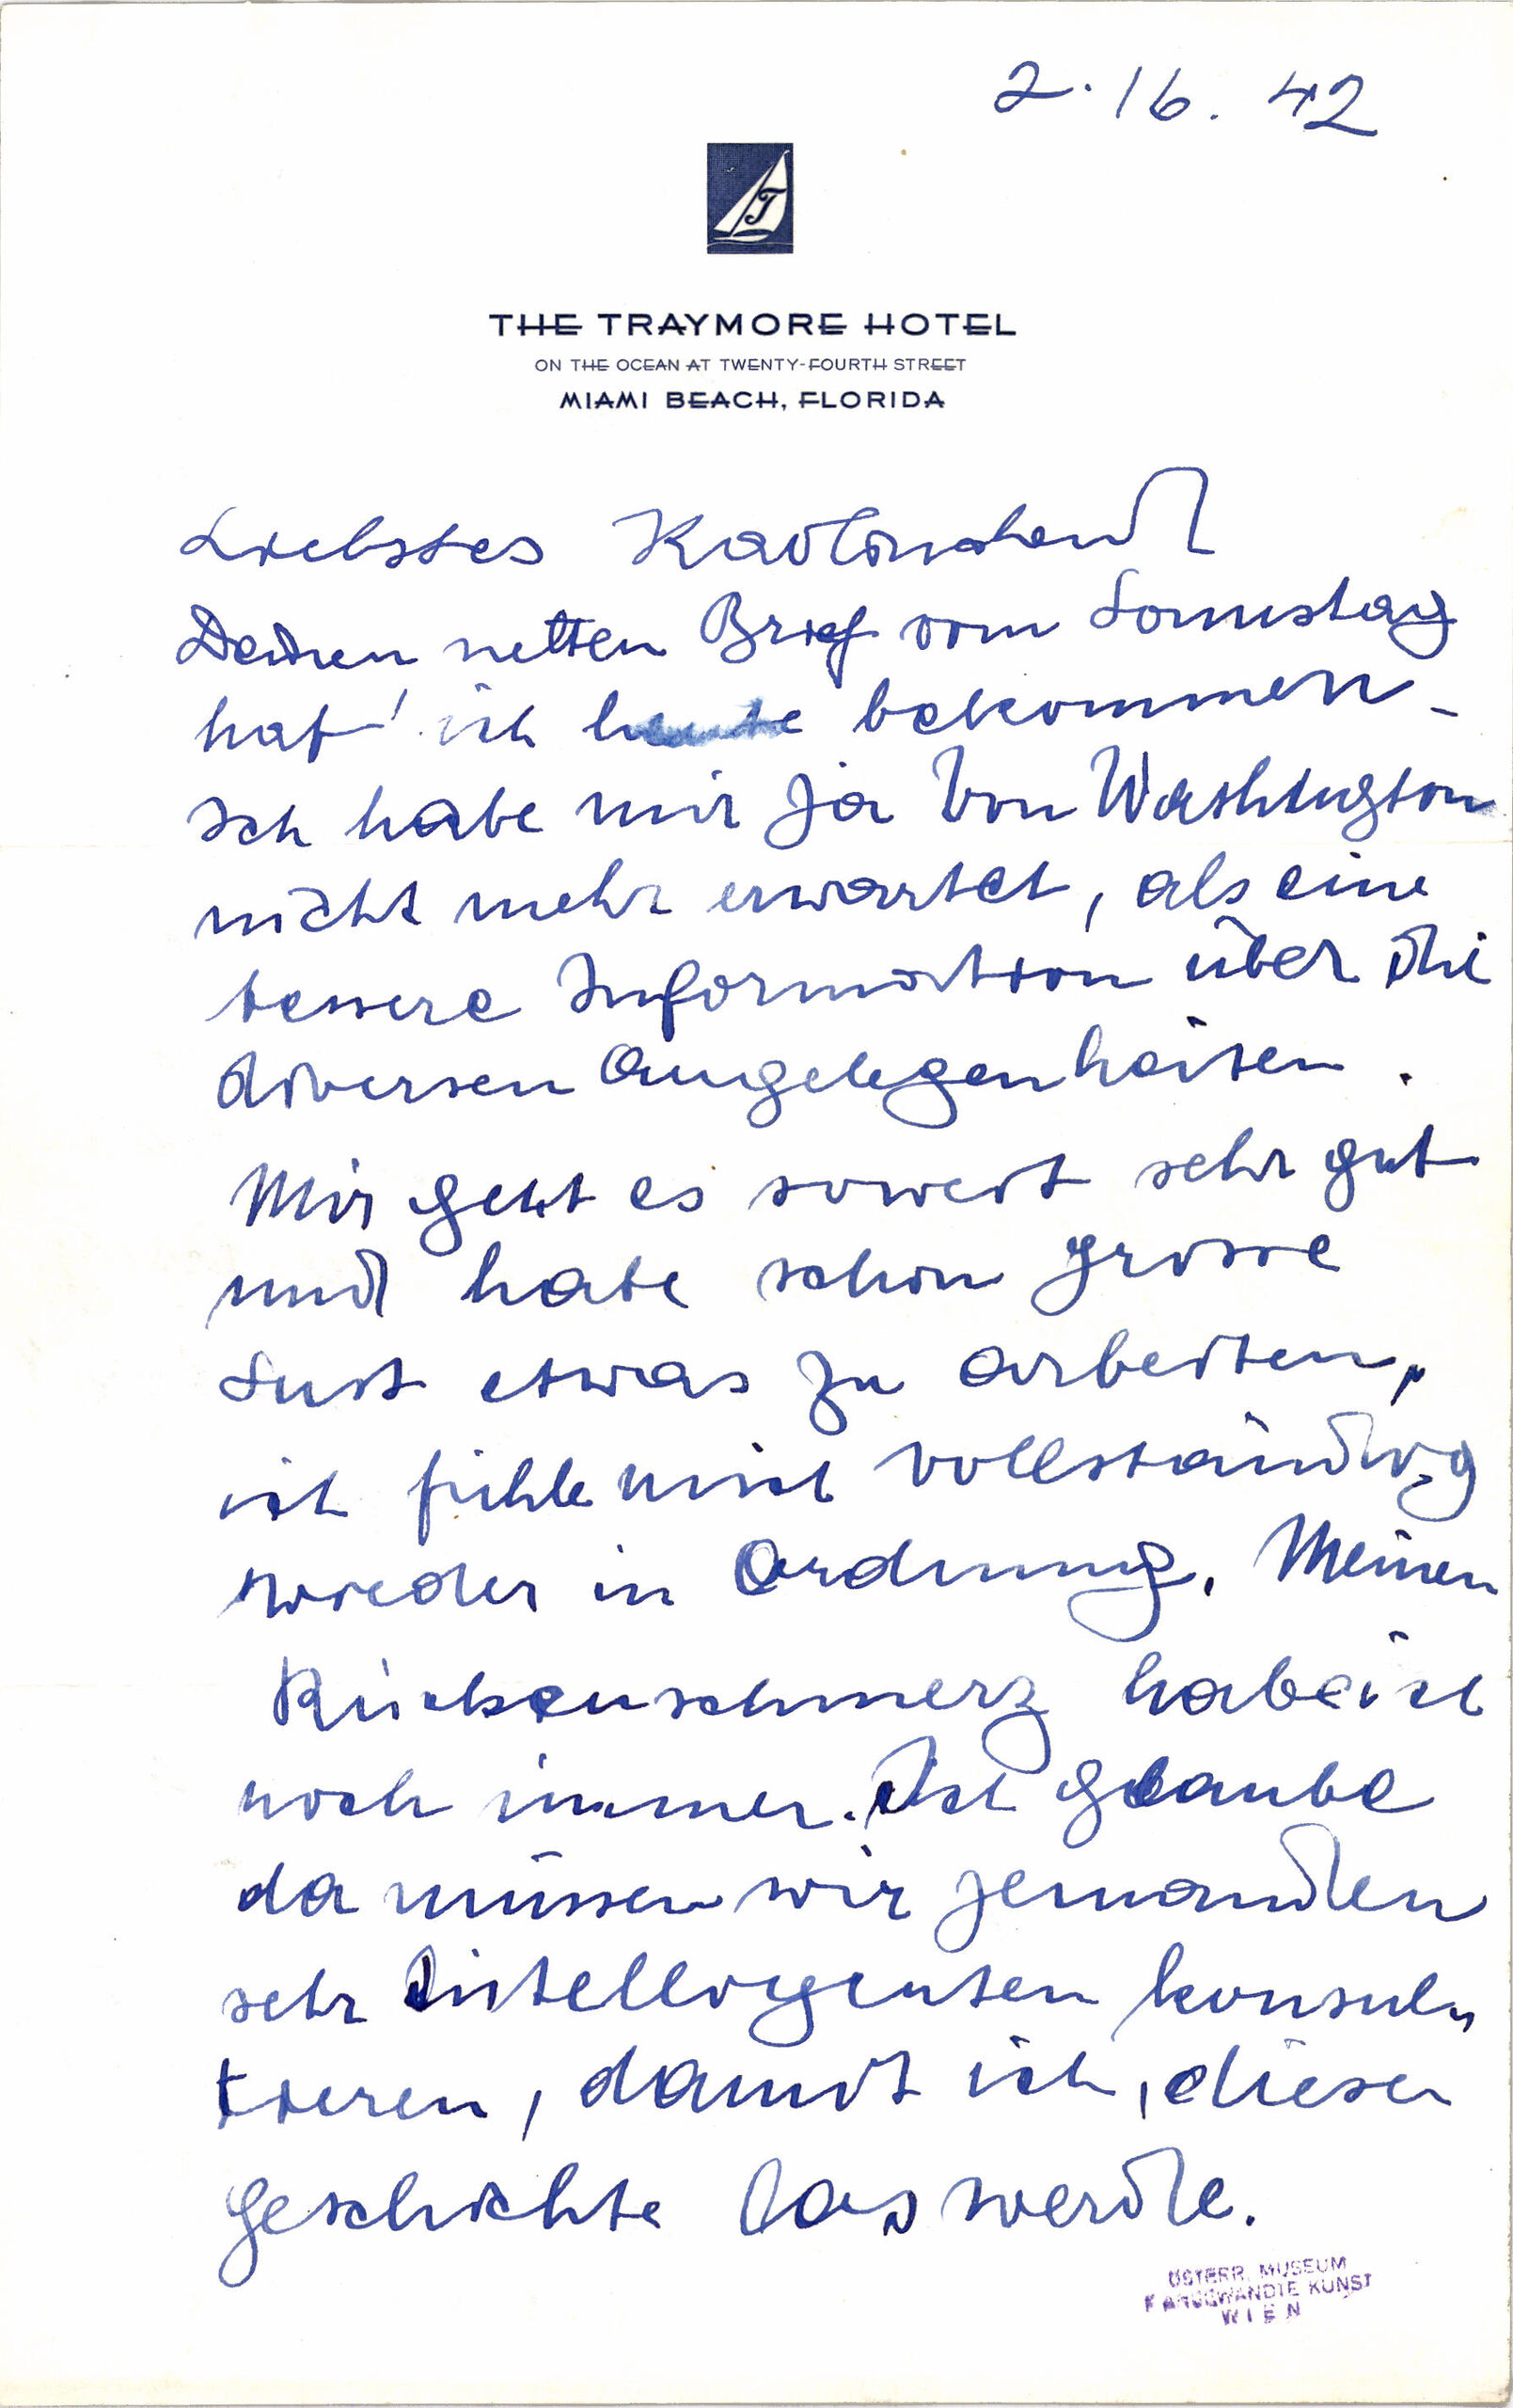 2.16.42
T
THE TRAYMORE HOTEL
ON THE OCEAN AT TWENTY-FOURTH STREET
MIAMI BEACH, FLORIDA
Liebstes
Deinen netten Brief vom
hab' ich heute bekommen -
Ich habe mir ja von Washington
nicht mehr erwartet, als eine
bessere Information über die
diversen Angelegenheiten.
Mir geht es soweit sehr gut
und habe schon grosse
Lust etwas zu arbeiten,
ich fühle mich vollständig
wieder in Ordnung. Meinen
Rückenschmerz habe ich
noch immer. Ich glaube
da müssen wir jemanden
sehr Intelligenten konsul-
tieren, damit ich diese
Geschichte los werde.
ÖSTERR. MUSEUM
F. ANGEWANDTE KUNST
WIEN